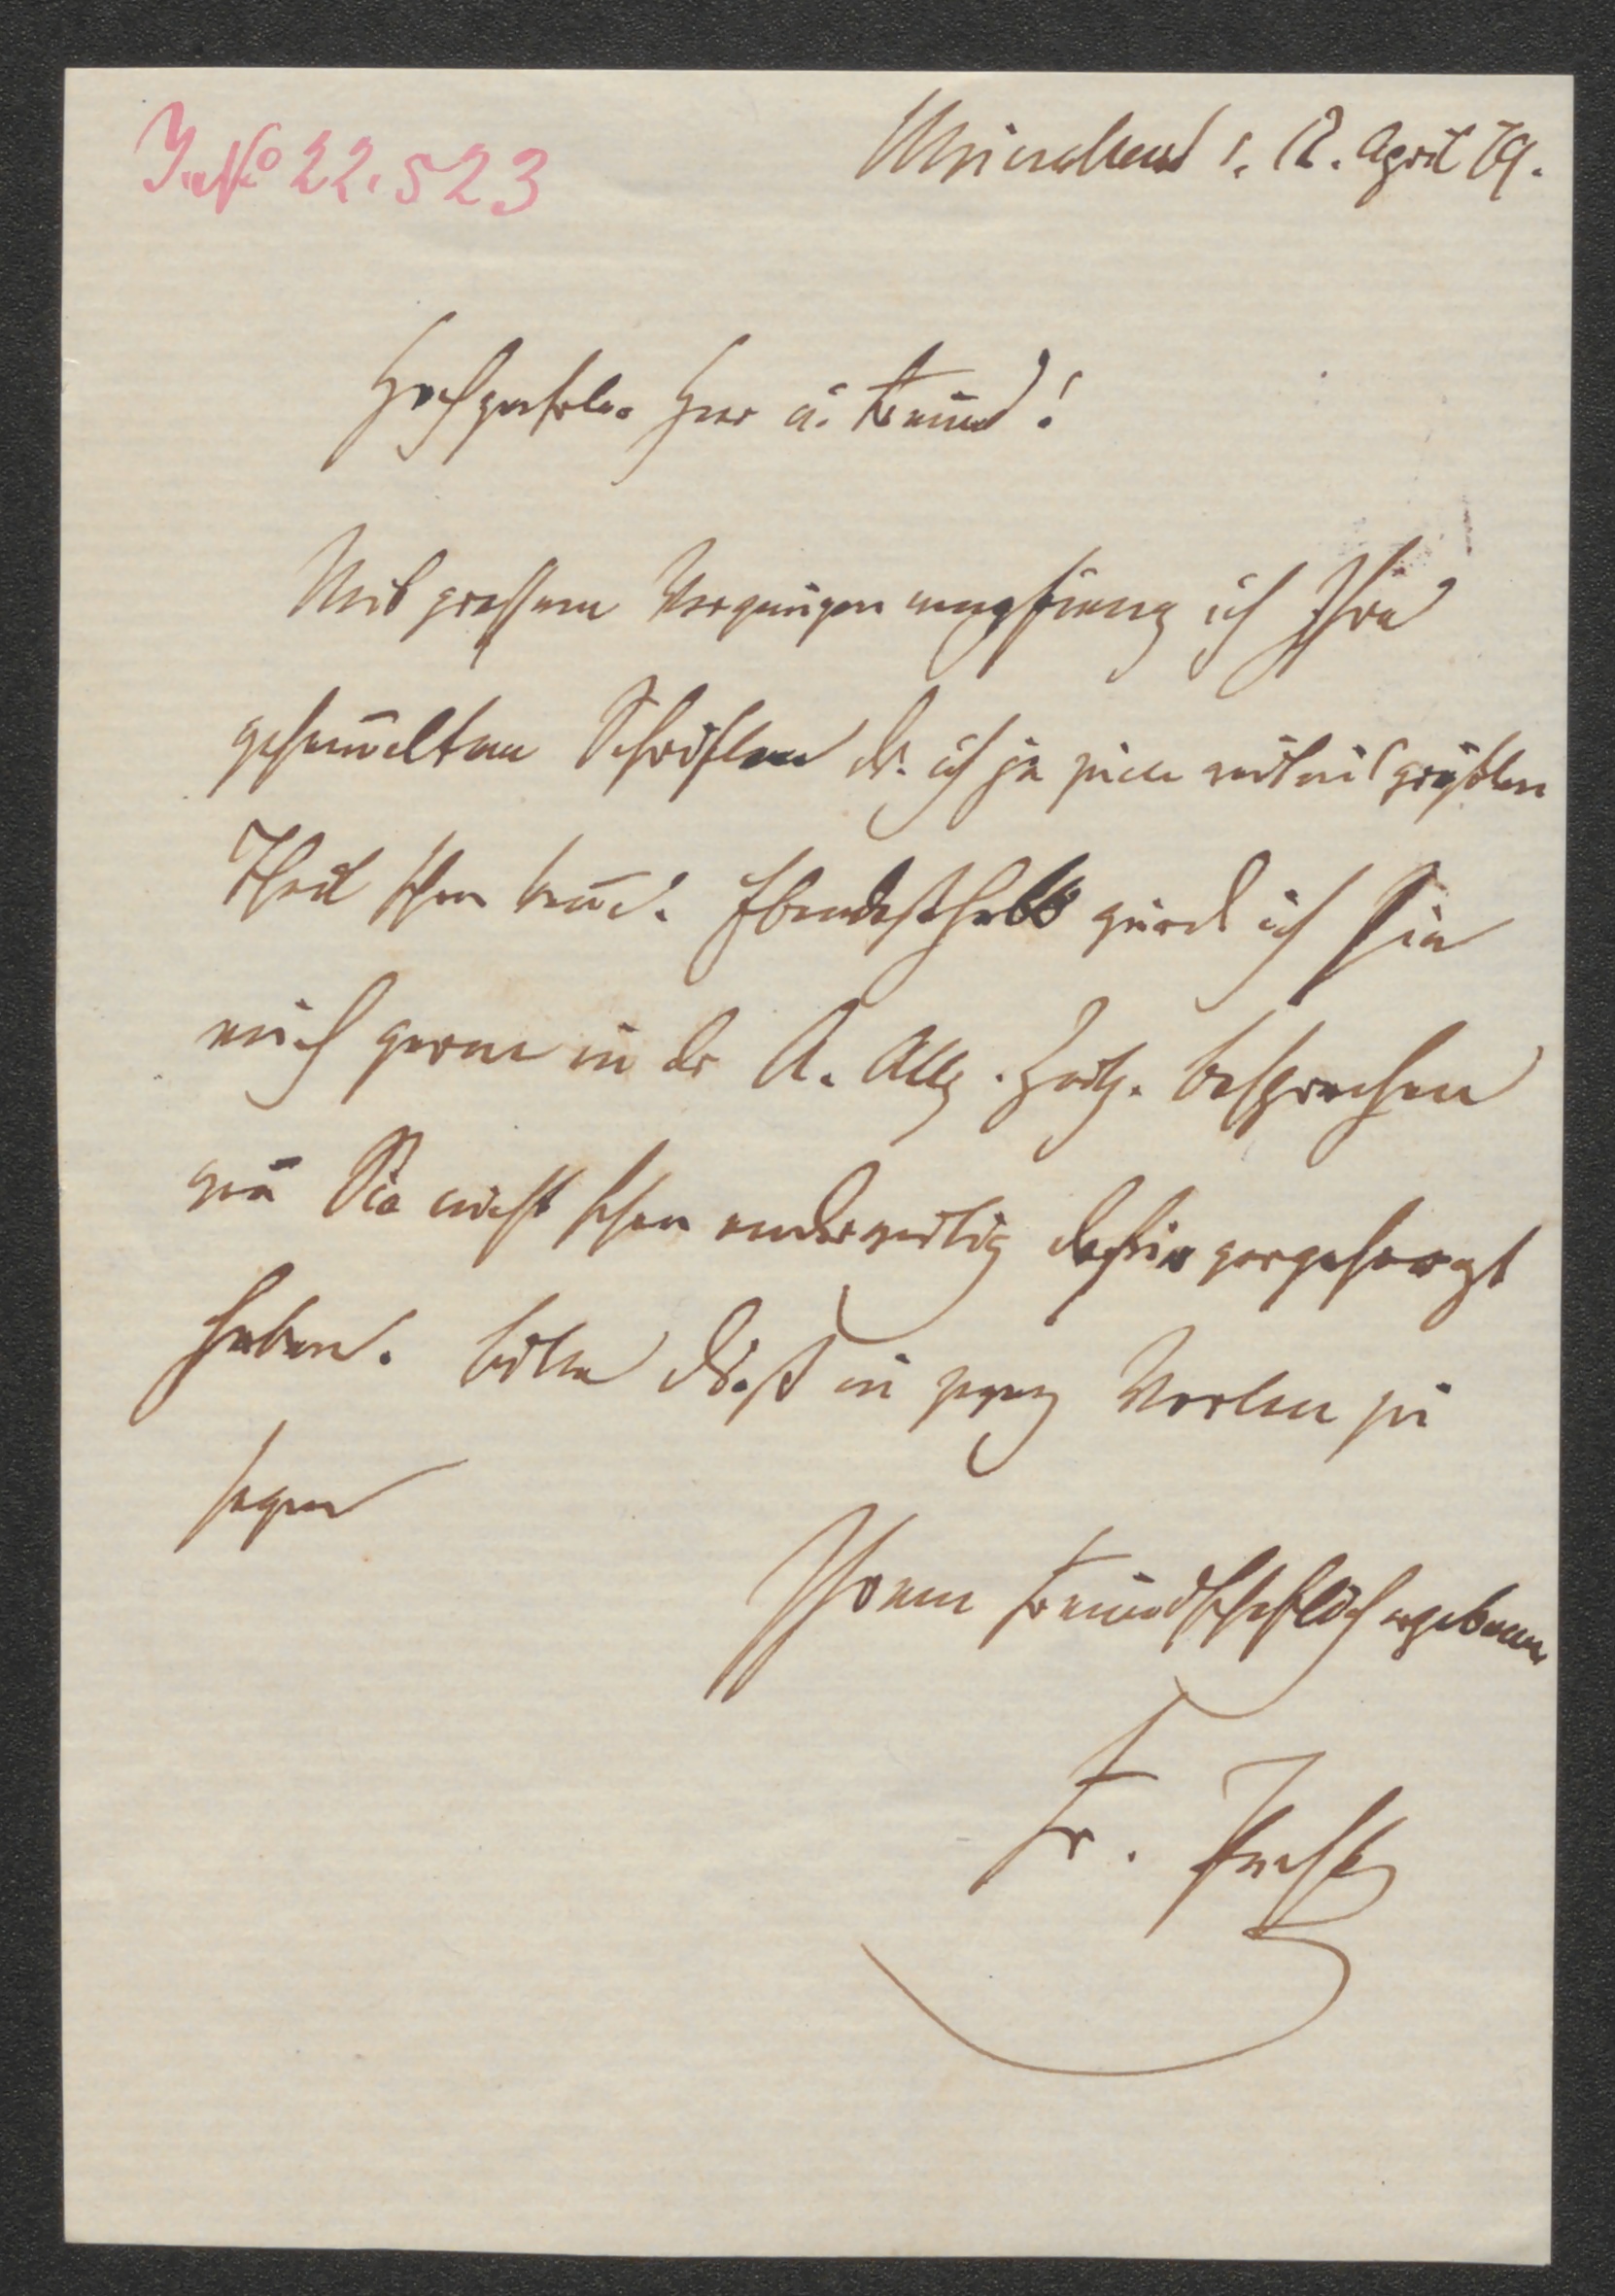 J. No 22.523
München d. 12. April 79.
Hochgeehrter Herr u. Freund!
Mit grossem Vergnügen empfieng ich Ihre
gesam̅elten Schriften die ich ja zum weitaus größten
Theil schon ken̅e. Ebendesshalb würd ich Sie
auch gerne in der A. Allg. Zeitg. besprechen
wen̅ Sie nicht schon anderweitig dafür vorgesorgt
haben. Bitte dieß in Worten zu
sagen
Ihrem freundschaftlich ergebenen
Fr. Pecht